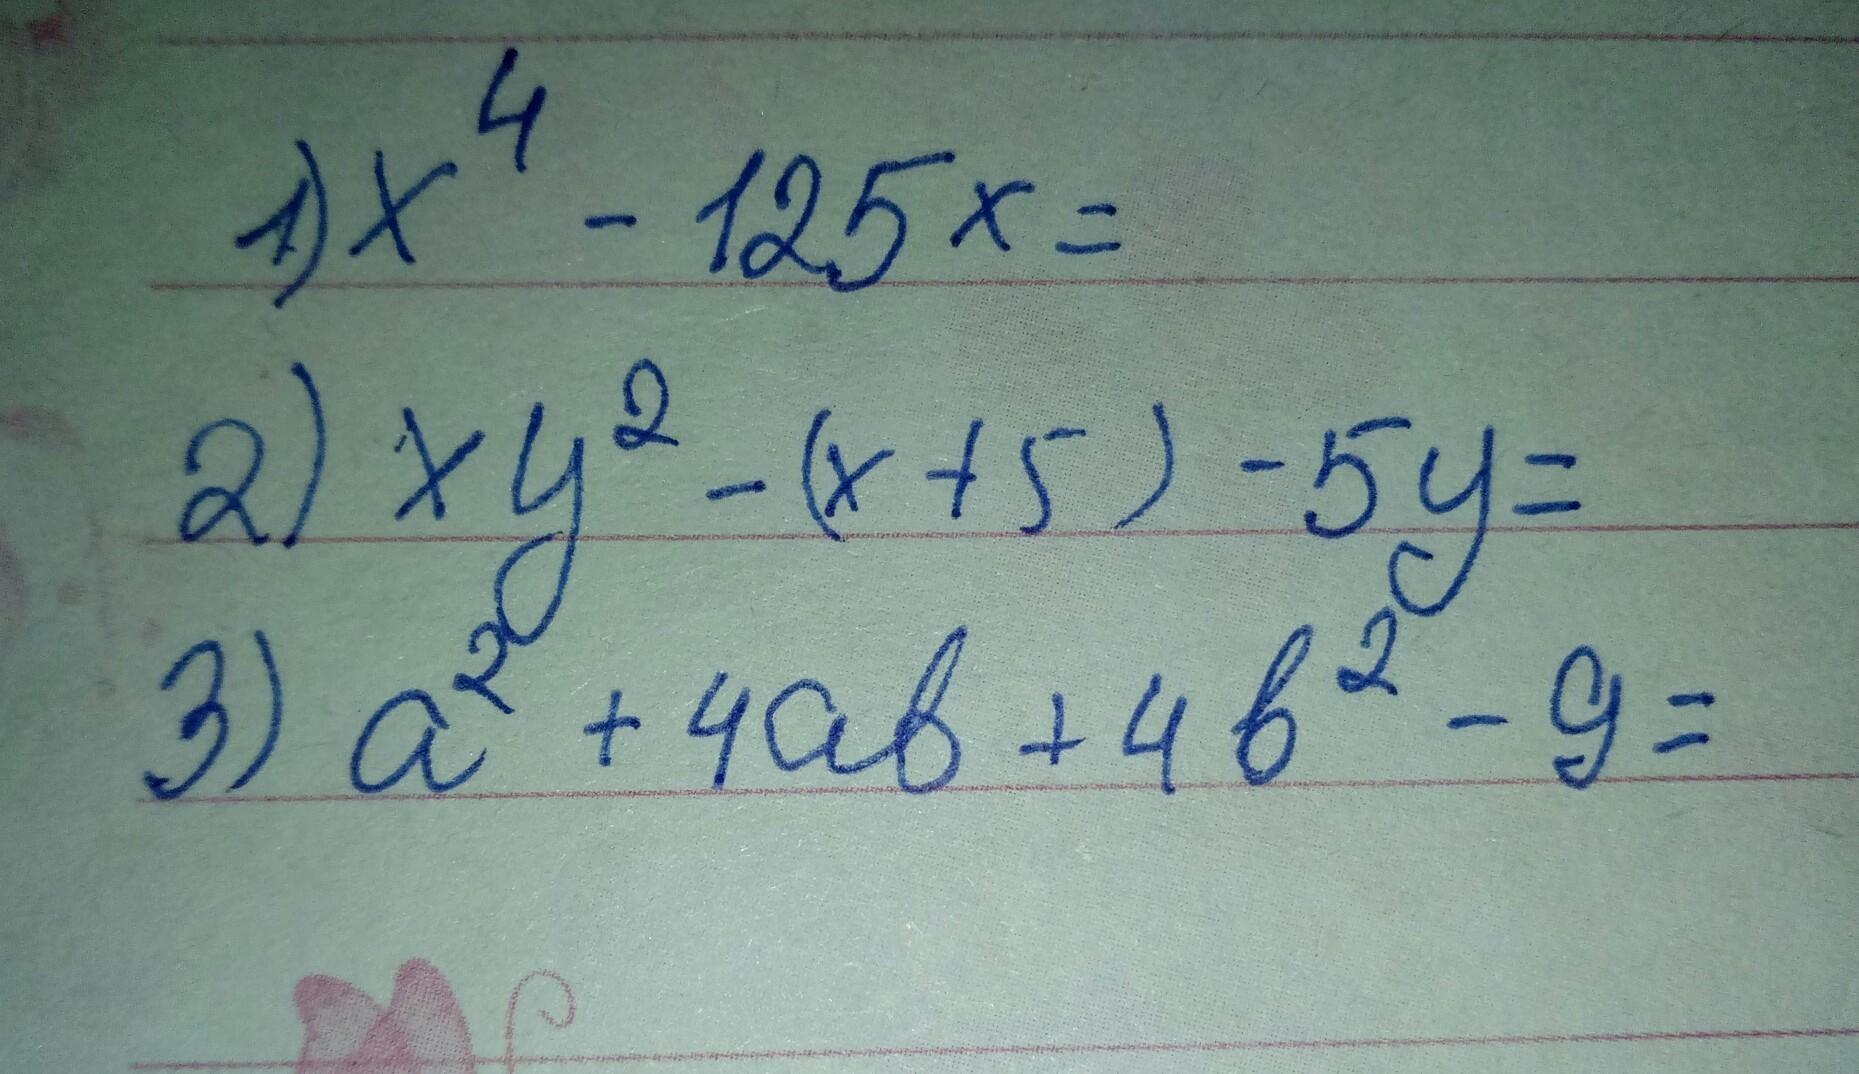 1) x⁴ - 125x =
2) xy² - (x + 5) - 5y =
3) a² + 4ab + 4b² - 9 =